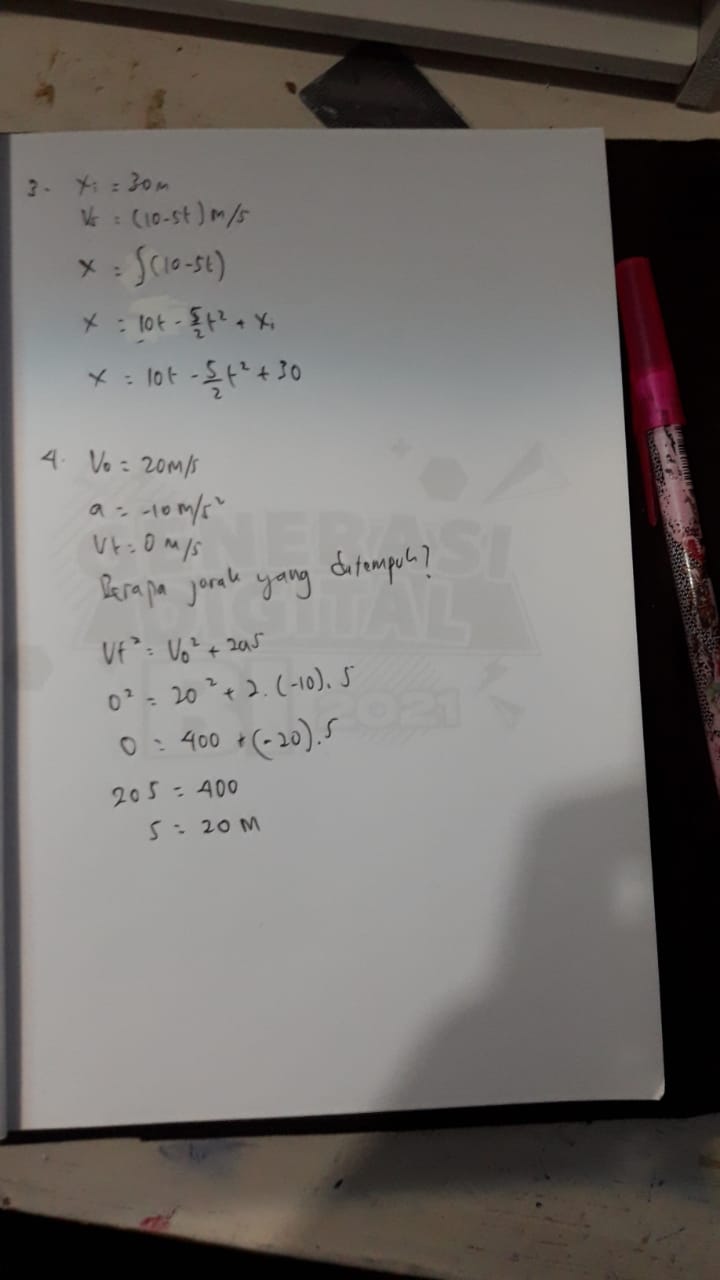 3- xi = 30m
Vs = (10-5t) m/s
x = ∫(10-5t)
x = 10t - 5/2 t² + xi
x = 10t - 5/2 t² + 30
4. Vo = 20m/s
a = -10 m/s²
Vt = 0 m/s
Berapa jarak yang ditempuh?
Vt² = Vo² + 2as
0² = 20² + 2. (-10). s
0 = 400 + (-20). s
20 s = 400
s = 20 M
GENERASI
DIGITAL
BI 2021